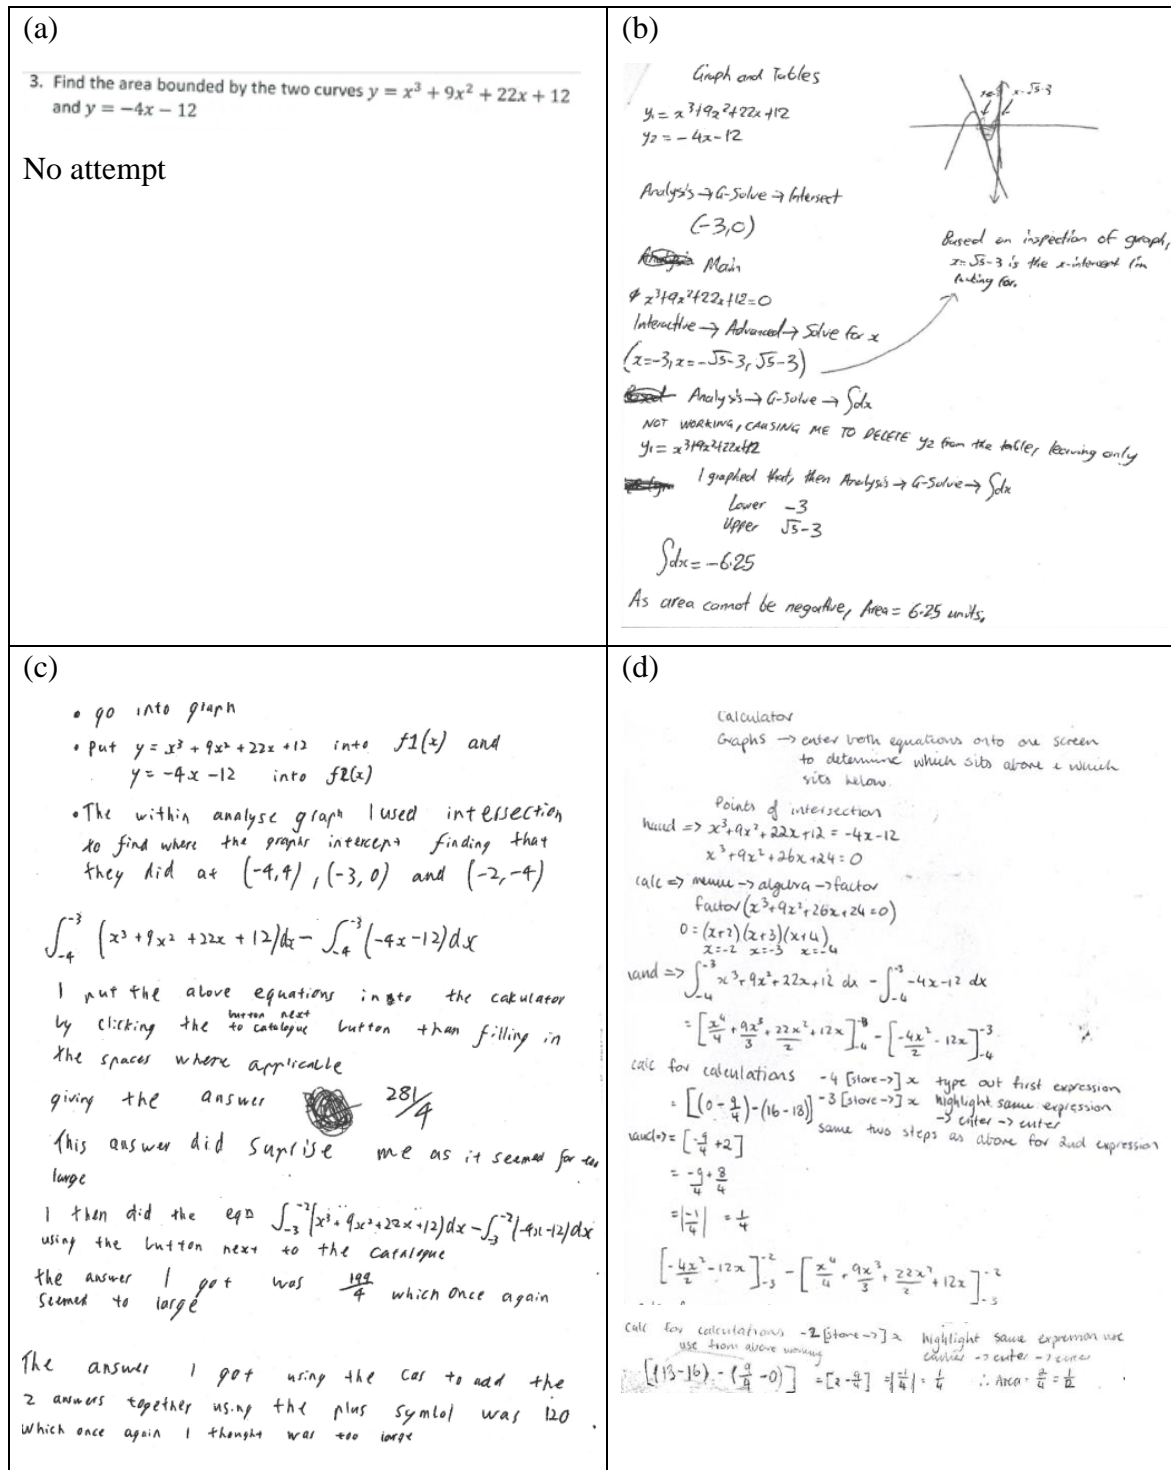 (a)
3. Find the area bounded by the two curves y = x³ + 9x² + 22x + 12
and y = −4x − 12
No attempt
(b)
Graph and Tables
y₁ = x³+9x²+22x+12
y₂ = -4x-12
x=√5-3
Analysis → G-Solve → Intersect
(-3,0)
Based on inspection of graph,
x=√5-3 is the x-intercept I'm
looking for.
Main
x³+9x²+22x+12=0
Interactive → Advanced → Solve for x
(x=-3, x=-√5-3, √5-3)
Analysis → G-Solve → ∫dx
NOT WORKING, CAUSING ME TO DELETE y₂ from the table, leaving only
y₁ = x³+9x²+22x+12
I graphed that, then Analysis → G-Solve → ∫dx
Lower -3
Upper √5-3
∫dx = -6.25
As area cannot be negative, Area = 6.25 units,
(c)
• go into graph
• put y = x³ + 9x² + 22x + 12 into f1(x) and
y = -4x - 12 into f2(x)
• The within analyse graph I used intersection
to find where the graphs intercept finding that
they did at (-4,4), (-3,0) and (-2,-4)
∫₋₄⁻³ (x³ + 9x² + 22x + 12)dx − ∫₋₄⁻³ (-4x-12)dx
I put the above equations into the calculator
by clicking the button next to catalogue button than filling in
the spaces where applicable
giving the answer 281/4
This answer did suprise me as it seemed far too
large
I then did the eqn ∫₋₃⁻² (x³+9x²+22x+12)dx − ∫₋₃⁻² (-4x-12)dx
using the button next to the catalogue
the answer I got was 199/4 which once again
seemed to large
The answer I got using the Cas to add the
2 answers together using the plus symbol was 120
which once again I thought was too large
(d)
Calculator
Graphs → enter both equations onto one screen
to determine which sits above & which
sits below.
Points of intersection
hand => x³+9x²+22x+12 = -4x-12
x³+9x²+26x+24=0
calc => menu → algebra → factor
factor(x³+9x²+26x+24=0)
0=(x+2)(x+3)(x+4)
x=-2 x=-3 x=-4
hand => ∫₋₄⁻³ x³+9x²+22x+12 dx - ∫₋₄⁻³ -4x-12 dx
= [x⁴/4 + 9x³/3 + 22x²/2 + 12x]₋₄⁻³ - [-4x²/2 - 12x]₋₄⁻³
calc for calculations -4 [store→] x type out first expression
= [(0-9/4)-(16-18)] -3 [store→] x highlight same expression
→ enter → enter
same two steps as above for 2nd expression
hand => = [-9/4 + 2]
= -9/4 + 8/4
= |-1/4| = 1/4
[-4x²/2 - 12x]₋₃⁻² - [x⁴/4 + 9x³/3 + 22x²/2 + 12x]₋₃⁻²
calc for calculations -2 [store→] x highlight same expression
use from above working earlier → enter → enter
[(18-16) - (9/4-0)] = [2-9/4] = |-1/4| = 1/4 ∴ Area = 2/4 = 1/2